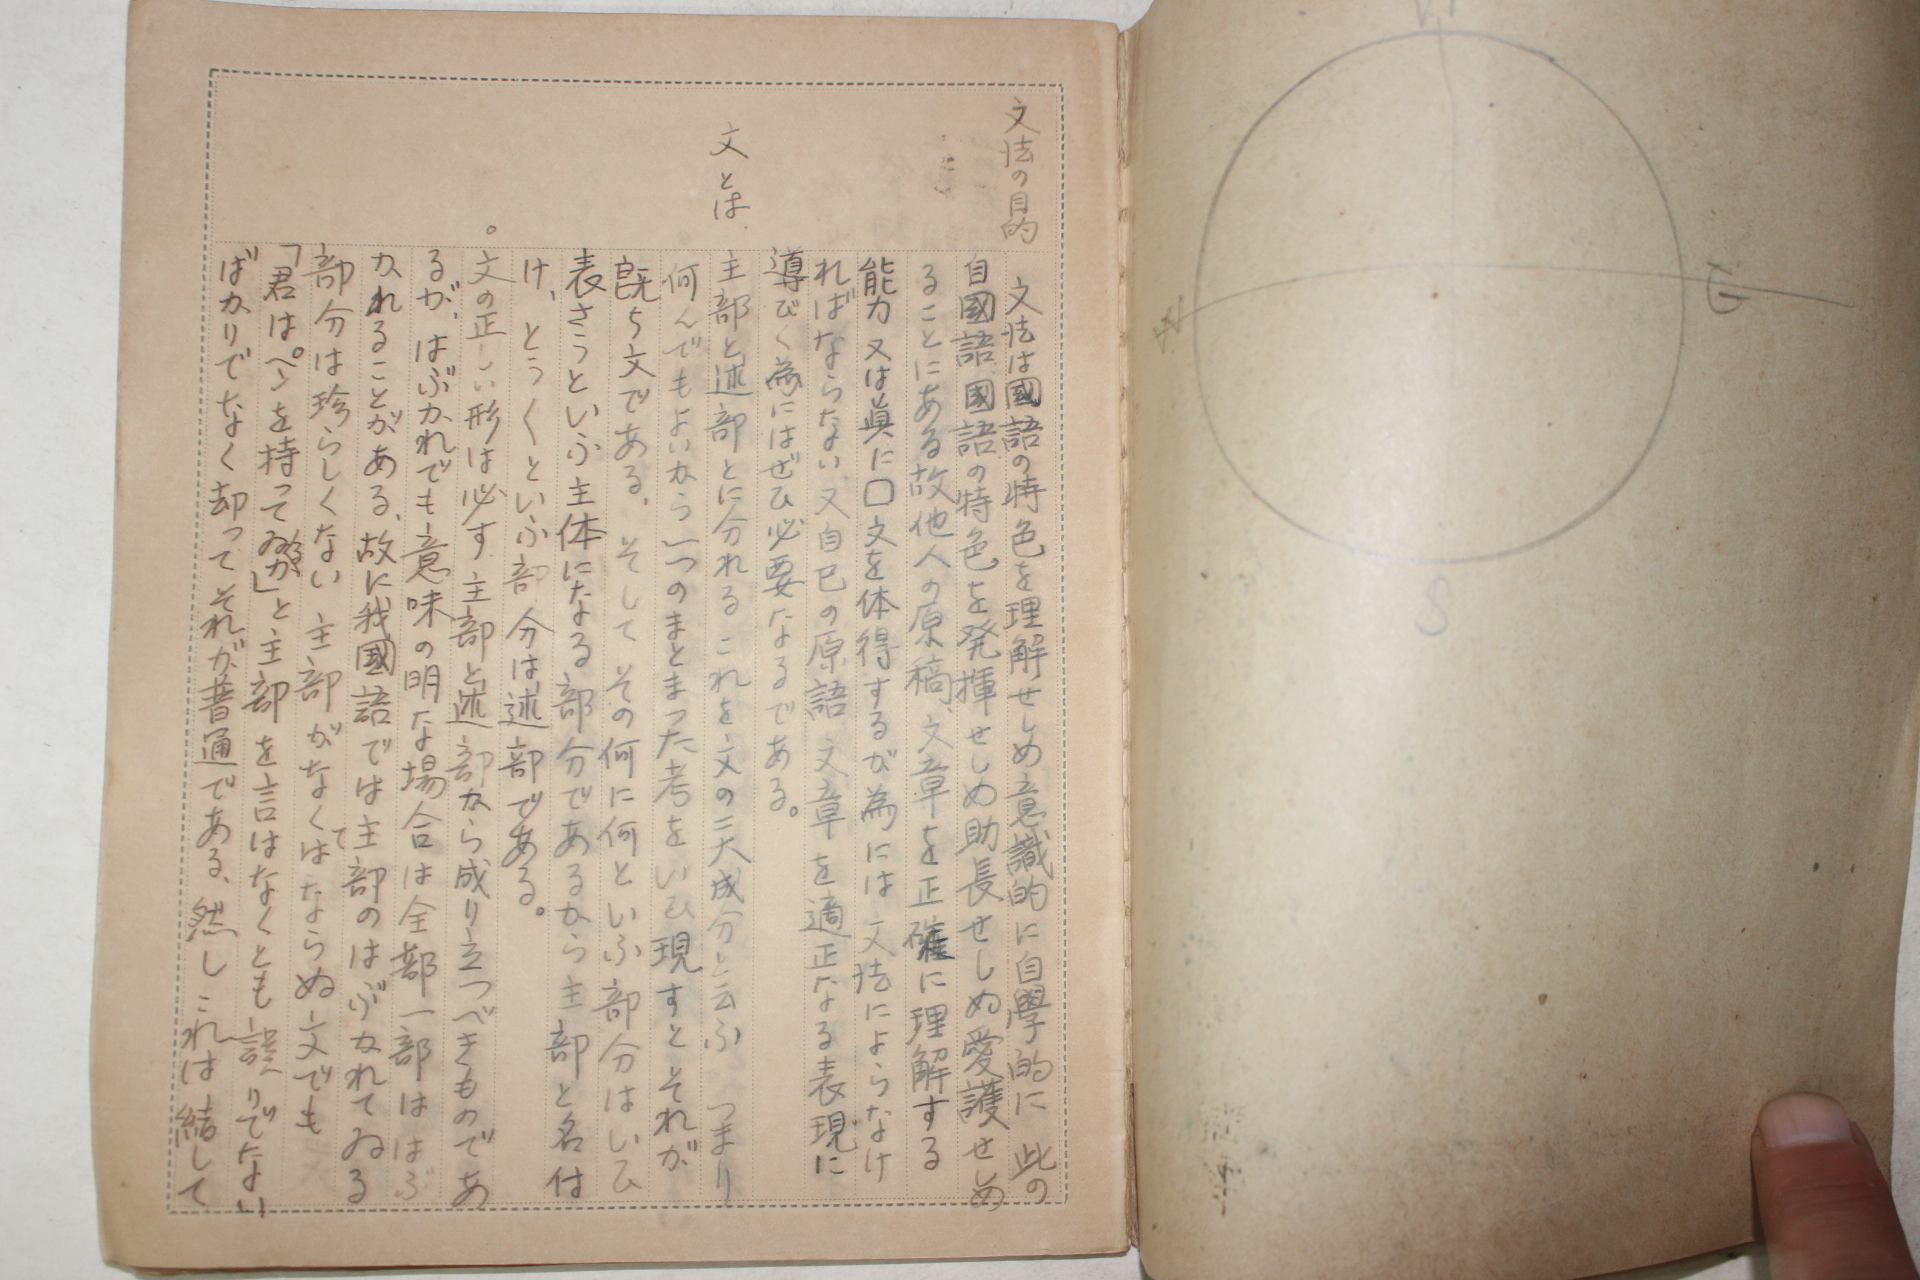 文法の目的
文法は國語の特色を理解せしめ意識的に自學的に 此の
自國語國語の特色を発揮せしめ助長せしめ愛護せしめ
ることにある故他人の原稿、文章を正確に理解する
能力又は眞に口文を体得するが為には文法によらなけ
ればならない、又自己の原語 文章を適正なる表現に
導びく為にはぜひ必要なるである。
文とは
主部と述部とに分れる これを文の二大成分と云ふ つまり
何んでもよいから一つのまとまった考をいひ現すとそれが
既ち文である、そして その何に何といふ部分はいひ
表さうといふ主体になる部分であるから主部と名付
け、とうくといふ部分は述部である。
。文の正しい形は必す主部と述部から成り立つべきものであ
るが、はぶかれでも意味の明な場合は全部一部ははぶ
かれることがある、故に我國語では主部のはぶかれてゐる
部分は珍らしくない 主部がなくてはならぬ文でも
「君はペンを持って か」と主部を言はなくとも誤りでない
ばかりでなく却ってそれが普通である、然しこれは結して
N
S